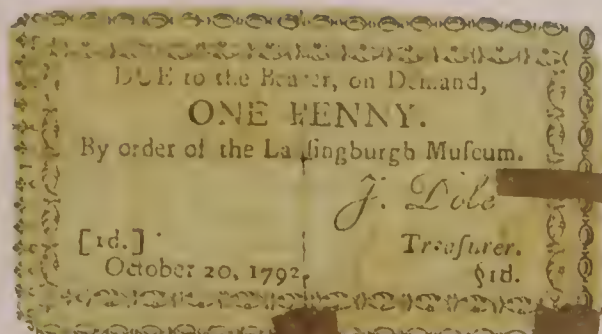 DUE to the Bearer, on Demand,
ONE PENNY.
By order of the Lanſingburgh Muſeum.
J. Dole
[1d.]
Treaſurer.
October 20, 1792.
§1d.